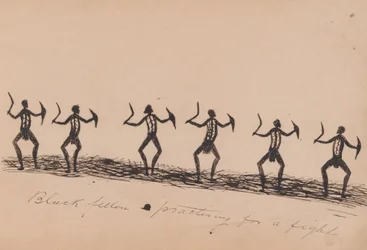 Black fellow practising for a fight